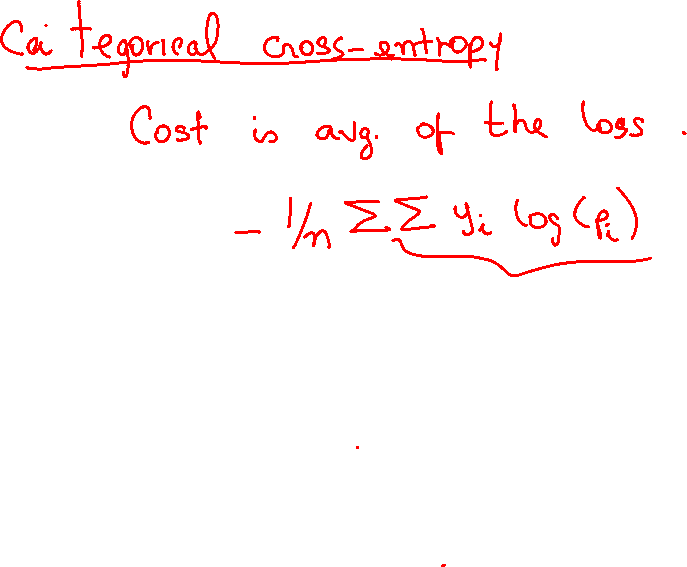 Categorical cross-entropy
Cost is avg. of the loss.
- 1/n ΣΣ yᵢ log(pᵢ)